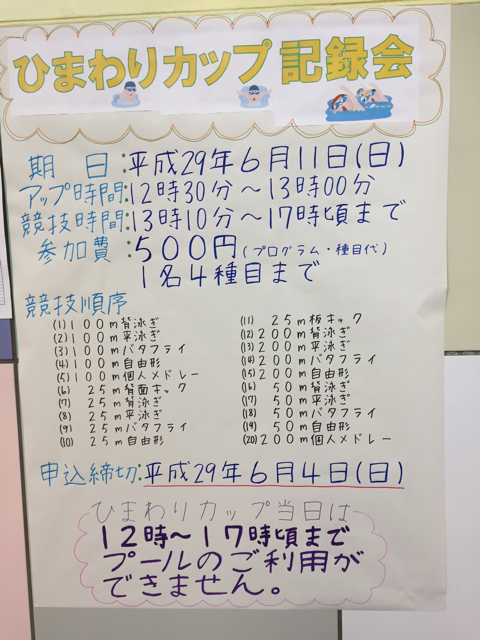 ひまわりカップ 記録会
期 日:平成29年6月11日(日)
アップ時間:12時30分～13時00分
競技時間:13時10分～17時頃まで
参加費:500円(プログラム・種目代)
1名4種目まで
競技順序
(1)100m背泳ぎ
(2)100m平泳ぎ
(3)100mバタフライ
(4)100m自由形
(5)100m個人メドレー
(6) 25m背面キック
(7) 25m背泳ぎ
(8) 25m平泳ぎ
(9) 25mバタフライ
(10) 25m自由形
(11) 25m板キック
(12)200m背泳ぎ
(13)200m平泳ぎ
(14)200mバタフライ
(15)200m自由形
(16) 50m背泳ぎ
(17) 50m平泳ぎ
(18) 50mバタフライ
(19) 50m自由形
(20)200m個人メドレー
申込締切:平成29年6月4日(日)
ひまわりカップ当日は
12時～17時頃まで
プールのご利用が
できません。